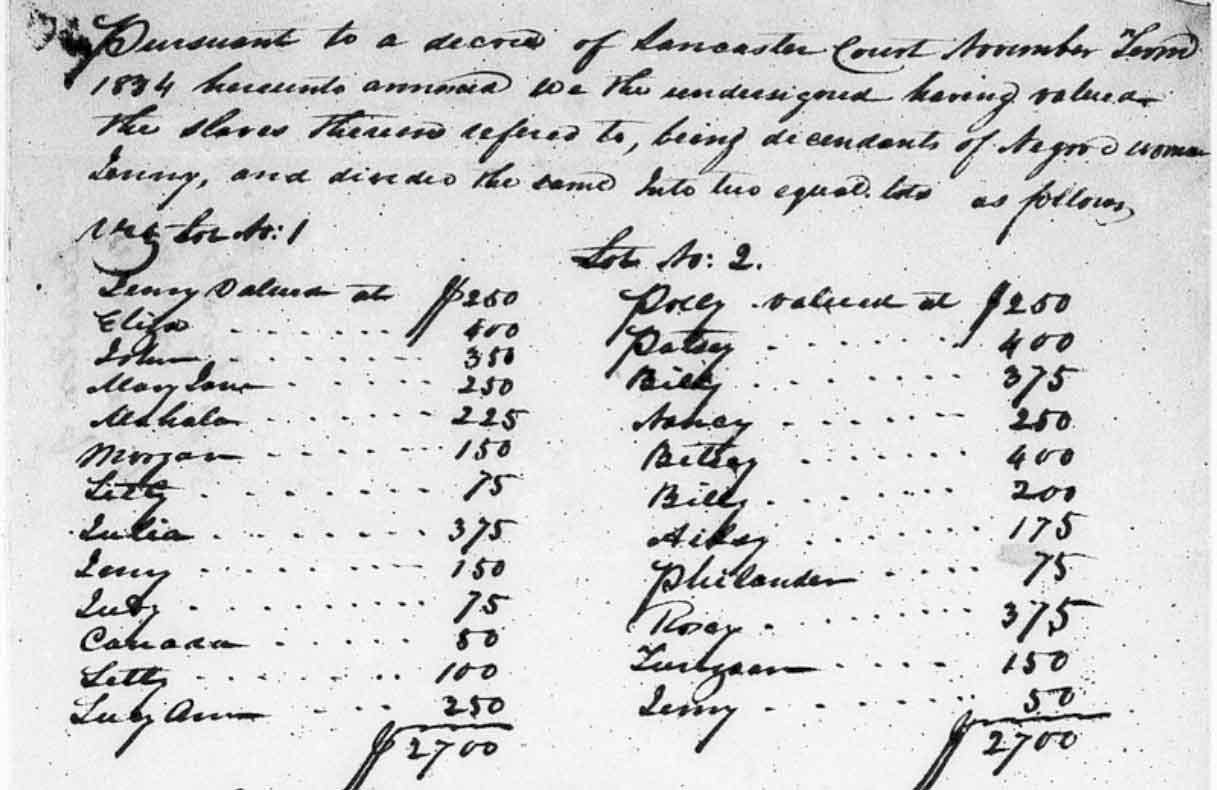 Pursuant to a decree of Lancaster Court November Term
1834 hereunto annexed we the undersigned having valued
the slaves therein refered to, being decendants of Negroe woman
Jenny, and divided the same Into two equal lots as follows,
Viz Lot No: 1
Lot No: 2.
Jenny Valued at $250
Eliza 400
John 350
Mary Jane 250
Mahala 225
Morgan 150
Letty 75
Julia 375
Jeny 150
Judy 75
Canada 50
Letty 100
Lucy Ann 250
$2700
Polly valued at $250
Patsey 400
Billy 375
Nancy 250
Betsey 400
Billy 200
175
Philander 75
Rosey 375
150
Jenny 50
$2700